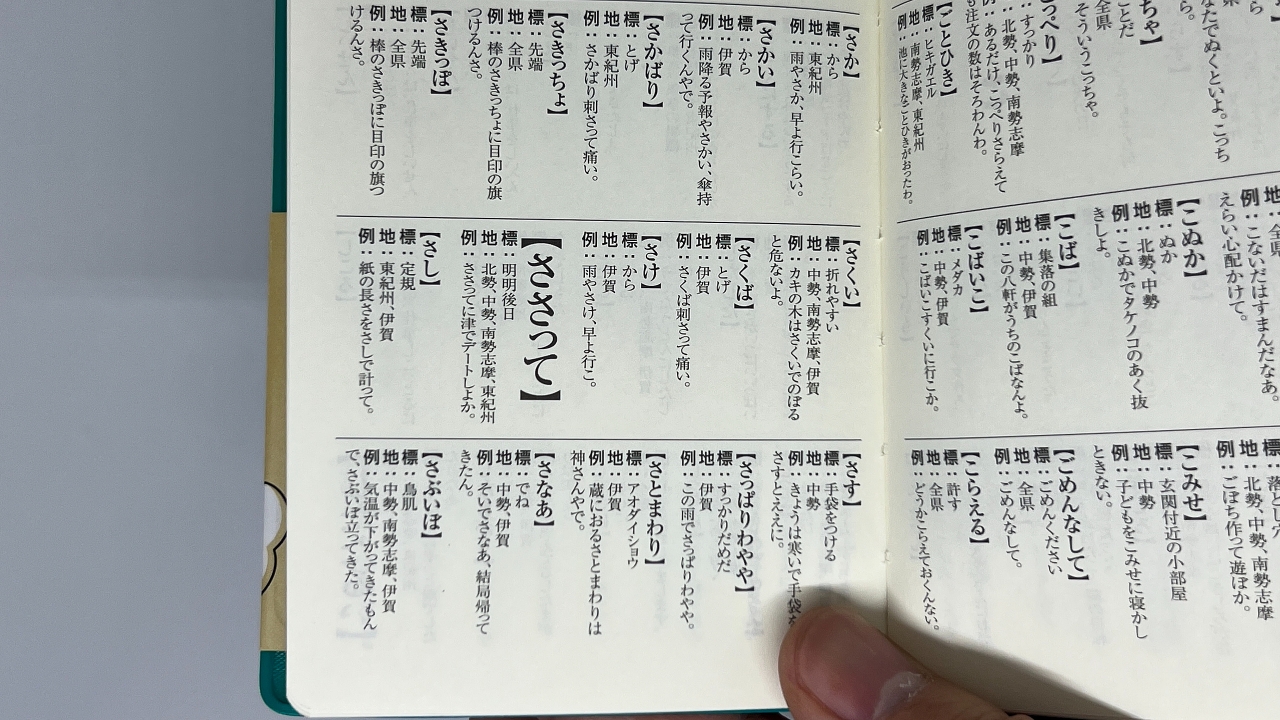 なたでぬくといよ。こっち
ら。
ちゃ】
ことだ
全県
そういうこっちゃ。
っぺり】
すっかり
：北勢、中勢、南勢志摩
例：あるだけ、こっぺりさらえて
も注文の数はそろわんわ。
【ことひき】
標：ヒキガエル
地：南勢志摩、東紀州
例：池に大きなことひきがおったわ。
地：全県
例：こないだはすまんだなあ。
えらい心配かけて。
【こぬか】
標：ぬか
地：北勢、中勢
例：こぬかでタケノコのあく抜
きしよ。
【こば】
標：集落の組
地：中勢、伊賀
例：この八軒がうちのこばなんよ。
【こばいこ】
標：メダカ
地：中勢、伊賀
例：こばいこすくいに行こか。
標：落とし穴
地：北勢、中勢、南勢志摩
例：ごぼち作って遊ぼか。
【こみせ】
標：玄関付近の小部屋
地：中勢
例：子どもをこみせに寝かし
ときない。
【ごめんなして】
標：ごめんください
地：全県
例：ごめんなして。
【こらえる】
標：許す
地：全県
例：どうかこらえておくんない。
【さか】
標：から
地：東紀州
例：雨やさか、早よ行こらい。
【さかい】
標：から
地：伊賀
例：雨降る予報やさかい、傘持
って行くんやで。
【さかばり】
標：とげ
地：東紀州
例：さかばり刺さって痛い。
【さきっちょ】
標：先端
地：全県
例：棒のさきっちょに目印の旗
つけるんさ。
【さきっぽ】
標：先端
地：全県
例：棒のさきっぽに目印の旗つ
けるんさ。
【さくい】
標：折れやすい
地：中勢、南勢志摩、伊賀
例：カキの木はさくいでのぼる
と危ないよ。
【さくば】
標：とげ
地：伊賀
例：さくば刺さって痛い。
【さけ】
標：から
地：伊賀
例：雨やさけ、早よ行こ。
【ささって】
標：明明後日
地：北勢、中勢、南勢志摩、東紀州
例：ささってに津でデートしよか。
【さし】
標：定規
地：東紀州、伊賀
例：紙の長さをさしで計って。
【さす】
標：手袋をつける
地：中勢
例：きょうは寒いで手袋を
さすとええに。
【さっぱりわやや】
標：すっかりだめだ
地：伊賀
例：この雨でさっぱりわやや。
【さとまわり】
標：アオダイショウ
地：伊賀
例：蔵におるさとまわりは
神さんやで。
【さなあ】
標：でね
地：中勢、伊賀
例：そいでさなあ、結局帰って
きたん。
【さぶいぼ】
標：鳥肌
地：中勢、南勢志摩、伊賀
例：気温が下がってきたもん
で、さぶいぼ立ってきた。